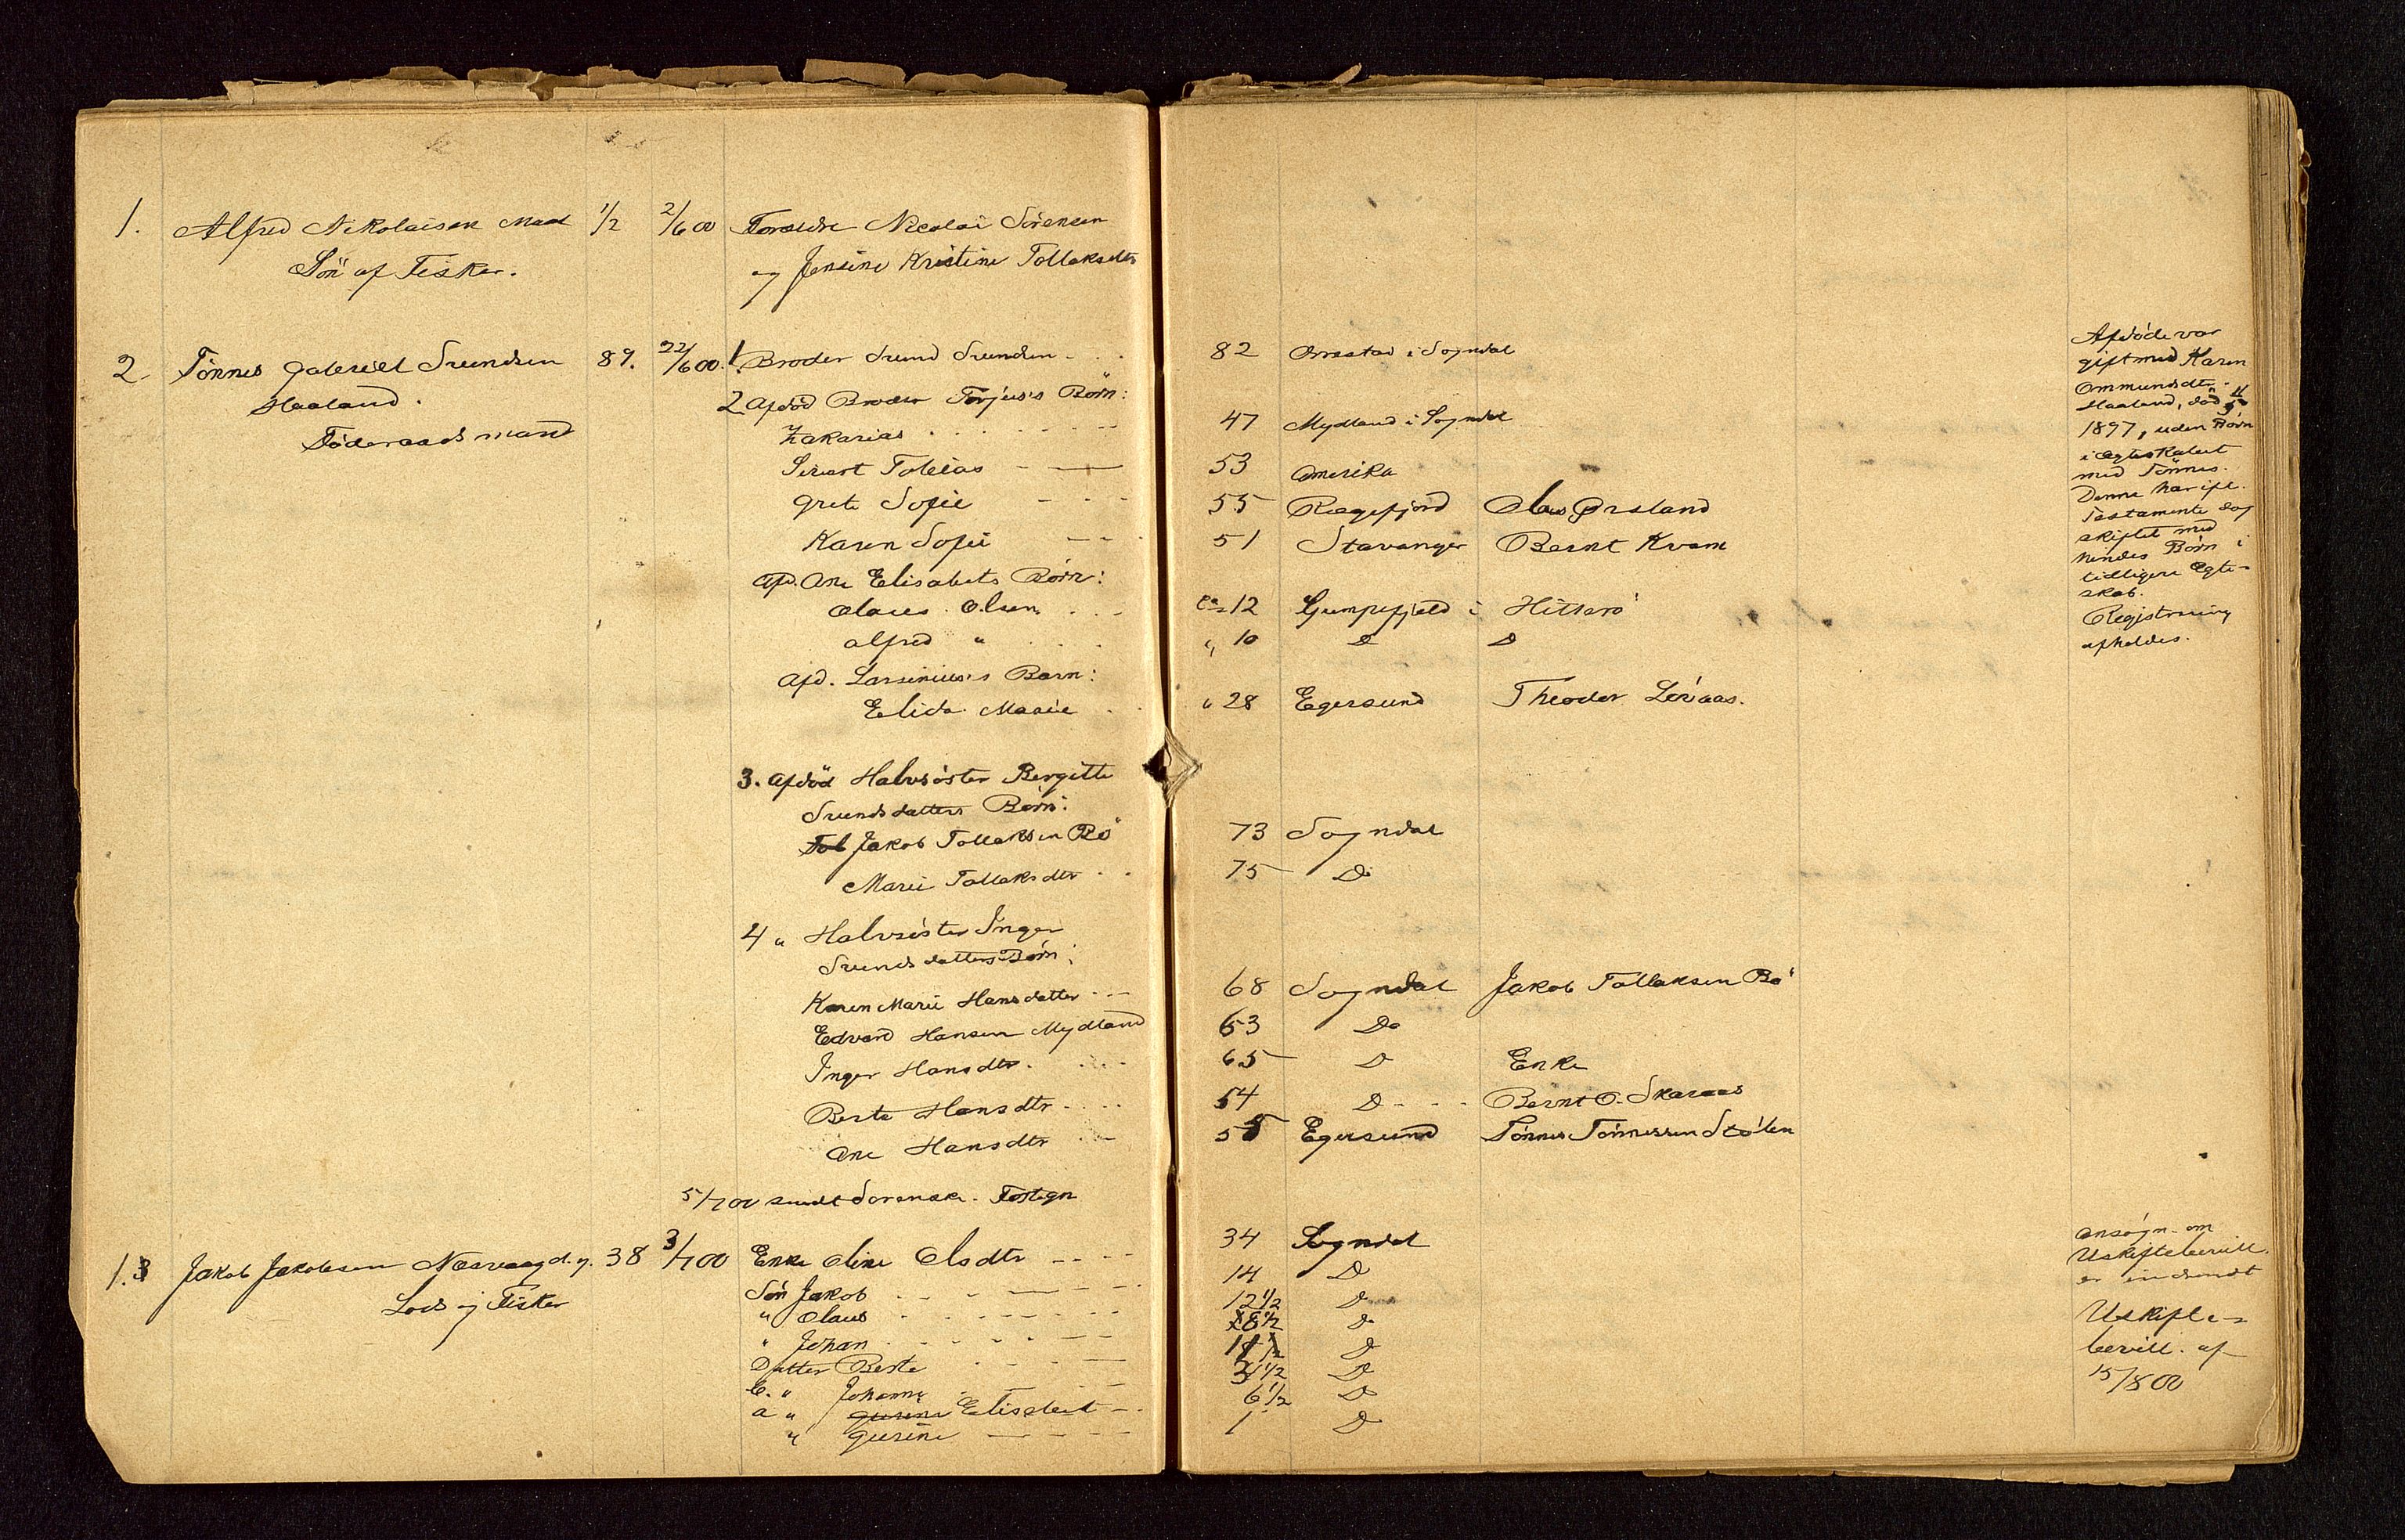 1. Alfred Nikolaisen 1/2 2/6 00 Forældre Nicolai Sörensen
Sön af Fisker. og Jensine Kristine Tollaksdtr
2. Tönnes Gabriel Svendsen 89. 22/6 00. 1. Broder Svend Svendsen - . .
Haaland. 2 Afdöd Broder Torjus's Börn:
Föderaadsmand Zakarias . . . . - - -
Sivert Tobias - —
Grete Sofie - - -
Karen Sofie - - -
Afd. Ane Elisabets Börn:
Olaus Olsen . . -
Alfred " . . .
Afd. Larsinius's Barn:
Elida Marie . .
3. Afdöd Halvsöster Bergitte
Svendsdatters Börn:
Jakob Tollaksen Bö
Marie Tollaksdtr . .
4 " Halvsöster Inger
Svendsdatters Börn:
Karen Marie Hansdatter - -
Edvard Hansen Mydland
Inger Hansdtr. . . . -
Berte Hansdtr - . . .
Ane Hansdtr . . -
5/7 00 sendt Sorensk.
1.3 Jakob Jakobsen Næsvaag d. y. 38 3/7 00 Enke Oline Olsdtr - - - -
Lods og Fisker Sön Jakob . . - — - -
" Olaus . . - - - -
" Johan . . . . - — —
Datter Berte . - . - —
b. " Johanne - - - —
a " Gurine Elisabet - .
" Gurine — - - -
82 Orrestad i Sogndal
47 Mydland i Sogndal
53 Amerika
55 Rægefjord Olaus Ørsland
51 Stavanger Bernt Kvam
ca 12 Gumpefjeld i Hitterö
" 10 D D
" 28 Egersund Theodor Lövaas.
73 Sogndal
75 Do
68 Sogndal Jakob Tollaksen Bö
63 Do
65 D Enke
54 D - - - Bernt O. Skaraas
55 Egersund Tönnes Tönnessen Stölen
34 Sogndal
14 D
12 1/2 D
8 1/2 D
D
D
6 1/2 D
1 D
Afdöde var
gift med Karen
Ommundsdtr.
Haaland, död
1897, uden Börn
i Ægteskabet
med Tönnes.
Denne har ifl.
Testamente
skiftet med
hendes Börn i
tidligere Ægte-
skab.
Registrering
afholdes.
Ansögn. om
Uskiftebevill.
er indsendt
Uskifte-
bevill. af
15/8 00